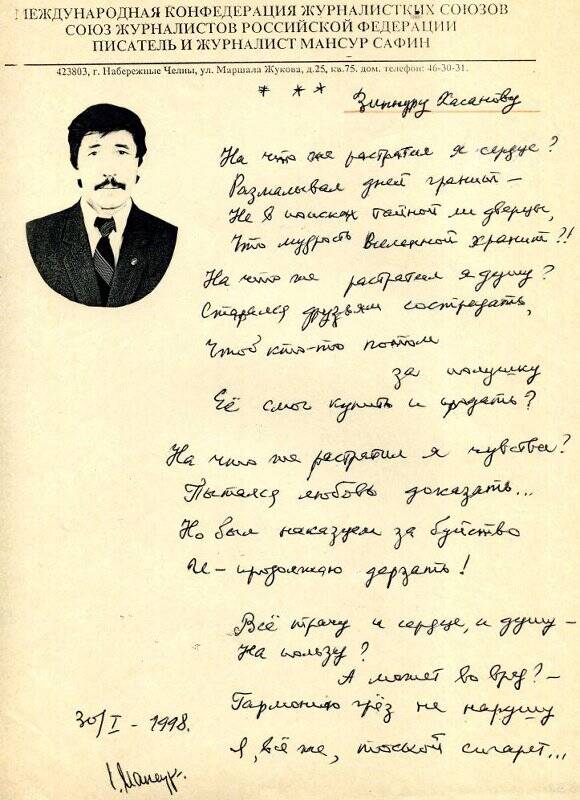 МЕЖДУНАРОДНАЯ КОНФЕДЕРАЦИЯ ЖУРНАЛИСТКИХ СОЮЗОВ
СОЮЗ ЖУРНАЛИСТОВ РОССИЙСКОЙ ФЕДЕРАЦИИ
ПИСАТЕЛЬ И ЖУРНАЛИСТ МАНСУР САФИН
423803, г. Набережные Челны, ул. Маршала Жукова, д.25, кв.75. дом. телефон: 46-30-31.
* * *
Зиннуру Хасанову
На что же растратил я сердце?
Размалывал дней гранит –
Не в поисках тайной ли дверцы,
Что мудрость Вселенной хранит?!
На что же растратил я душу?
Старался друзьям сострадать,
Чтоб кто-то потом
за полушку
Её смог купить и продать?
На что же растратил я чувства?
Пытался любовь доказать...
Но был наказуем за буйство
И – продолжаю дерзать!
Всё трачу и сердце, и душу –
На пользу?
А может во вред? –
Гармонию грёз не нарушу
Я, всё же, тоской сигарет...
30/I - 1998.
С. Мансур.